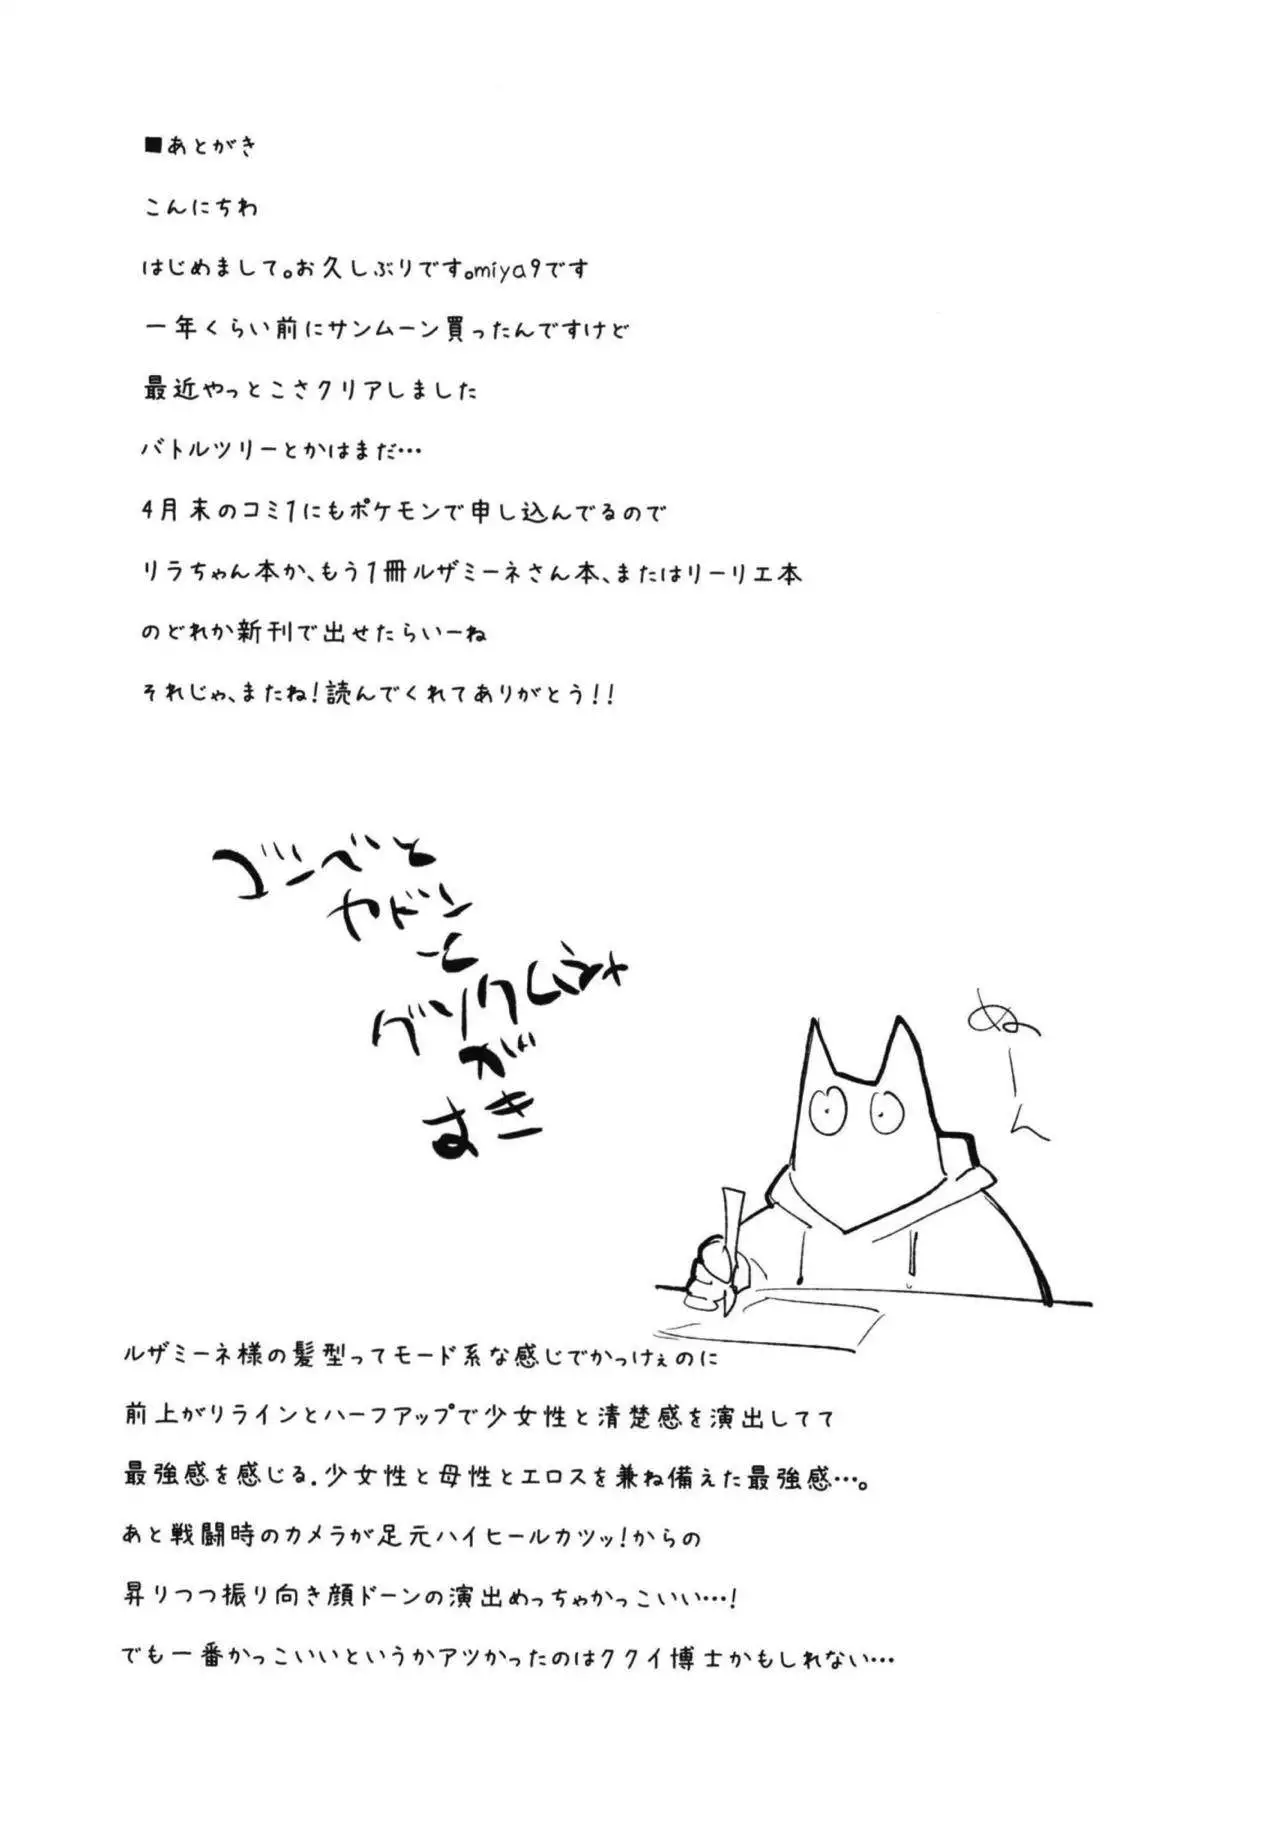 ■あとがき
こんにちわ
はじめまして。お久しぶりです。miya9です
一年くらい前にサンムーン買ったんですけど
最近やっとこさクリアしました
バトルツリーとかはまだ…
4月末のコミ1にもポケモンで申し込んでるので
リラちゃん本か、もう1冊ルザミーネさん本、またはリーリエ本
のどれか新刊で出せたらいーね
それじゃ、またね!読んでくれてありがとう!!
ゴンべと
ヤドン
と
グソクムシャ
が
すき
ぬーん
ルザミーネ様の髪型ってモード系な感じでかっけぇのに
前上がりラインとハーフアップで少女性と清楚感を演出してて
最強感を感じる.少女性と母性とエロスを兼ね備えた最強感…。
あと戦闘時のカメラが足元ハイヒールカツッ!からの
昇りつつ振り向き顔ドーンの演出めっちゃかっこいい…!
でも一番かっこいいというかアツかったのはククイ博士かもしれない…